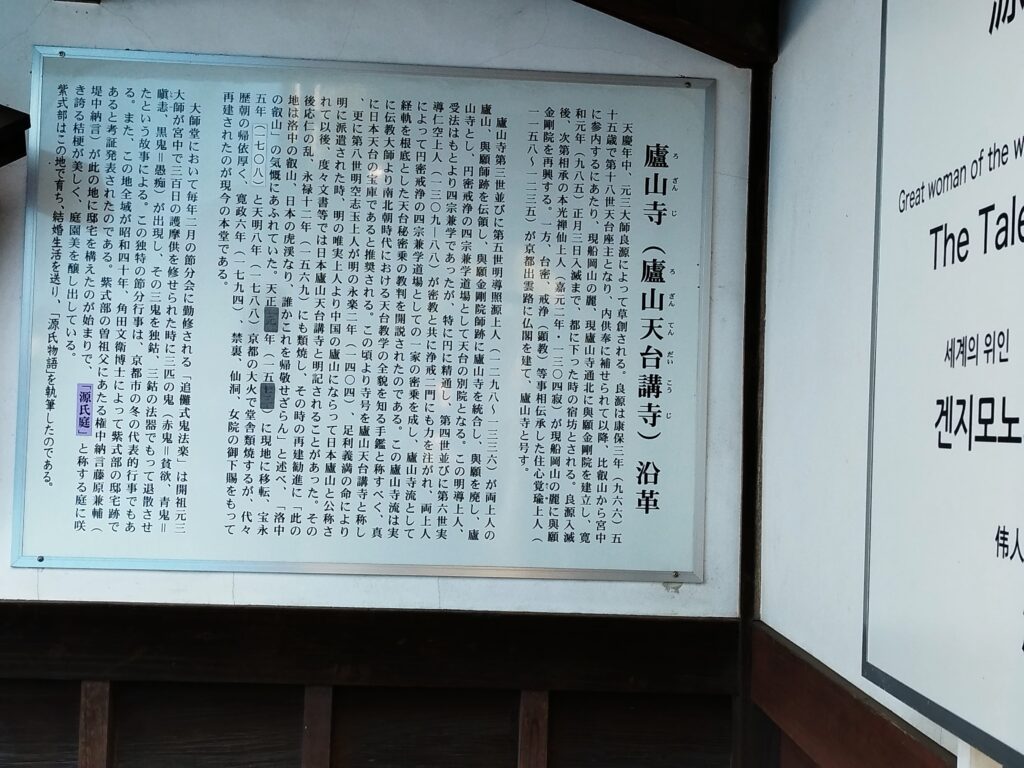 廬山寺（廬山天台講寺）沿革
ろ ざん じ ろ ざん てん だい こう じ
天慶年中、元三大師良源によって草創される。良源は康保三年（九六六）五
十五歳で第十八世天台座主となり、内供奉に補せられて以降、比叡山から宮中
に参内するにあたり、現船岡山の麓、現廬山寺通北に與願金剛院を建立し、寛
和元年（九八五）正月三日入滅まで、都に下った時の宿坊とされる。良源入滅
後、次第相承の本光禅仙上人（嘉元二年・一三〇四寂）が現船岡山の麓に與願
金剛院を再興する。一方、台密、戒浄（顕教）等事相伝承した住心覚瑜上人（
一一五八〜一二三五）が京都出雲路に仏閣を建て、廬山寺と号す。
廬山寺第三世並びに第五世明導照源上人（一二九八〜一三三六）が両上人の
廬山、與願師跡を伝領し、與願金剛院師跡に廬山寺を統合し、與願を廃し、廬
山寺とし、円密戒浄の四宗兼学道場として天台の別院となる。この明導上人、
受法はもとより四宗兼学であったが、特に円に精通し、第四世並びに第六世実
導仁空上人（一三〇九〜八八）が密教と共に浄戒二門にも力を注がれ、両上人
によって円密戒浄の四宗兼学道場としての一家の密乗を成し、廬山寺流として
経軌を根底とした天台秘密乗の教判を開説されたのである。この廬山寺流は実
に伝教大師より南北朝時代における天台教学の全貌を知る手鑑と称すべく、真
に日本天台の宝庫であると推奨される。この頃より寺号を廬山天台講寺と称し
、更に第八世明空志玉上人が明の永楽二年（一四〇四）、足利義満の命により
明に派遣された時、明の唯実上人より中国の廬山にならって日本廬山と公称さ
れて以後、度々文書等では日本廬山天台講寺と明記されることがあった。その
後応仁の乱、永禄十二年（一五六九）にも類焼し、その時の再建勧進に「此の
地は洛中の叡山、日本の虎渓なり、誰かこれを帰敬せざらん」と述べ、「洛中
の叡山」の気慨にあふれていた。天正 年（一五 ）に現地に移転、宝永
五年（一七〇八）と天明八年（一七八八）京都の大火で堂舎類焼するが、代々
歴朝の帰依厚く、寛政六年（一七九四）、禁裏、仙洞、女院の御下賜をもって
再建されたのが現今の本堂である。
大師堂において毎年二月の節分会に勤修される「追儺式鬼法楽」は開祖元三
大師が宮中で三百日の護摩供を修せられた時に三匹の鬼（赤鬼＝貪欲、青鬼＝
瞋恚、黒鬼＝愚痴）が出現し、その三鬼を独鈷、三鈷の法器でもって退散させ
たという故事による。この独特の節分行事は、京都市の冬の代表的行事でもあ
る。また、この地全域が昭和四十年、角田文衛博士によって紫式部の邸宅跡で
あると考証発表されたのである。紫式部の曽祖父にあたる権中納言藤原兼輔（
堤中納言）が此の地に邸宅を構えたのが始まりで、「源氏庭」と称する庭に咲
き誇る桔梗が美しく、庭園美を醸し出している。
紫式部はこの地で育ち、結婚生活を送り、「源氏物語」を執筆したのである。
Great woman of the w
The Tale
세계의 위인
겐지모노
偉人